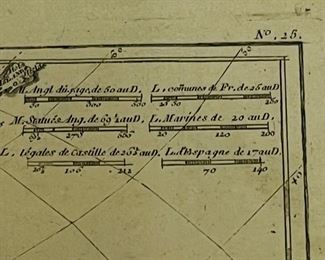 N.º 25.
M. Angl. d'usage, de 50 au D.
L. cõmunes de Fr. de 25 au D.
M. Statués Ang. de 69½ au D.
L. Marines de 20 au D.
20 120 260
L. légales de Castille de 26½ au D.
L. d'Espagne de 17 au D.
100 212
70 140